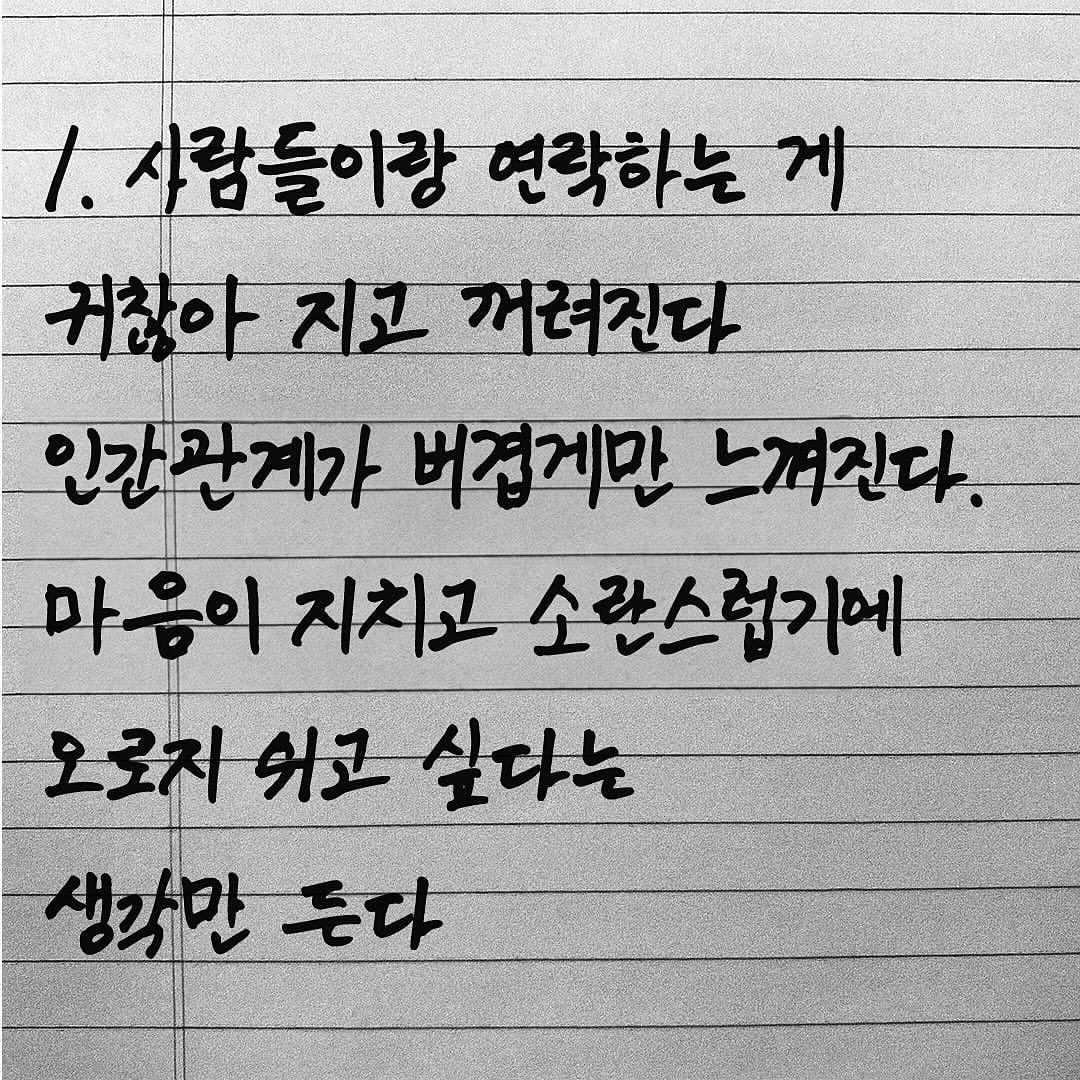 1. 사람들이랑 연락하는 게
귀찮아 지고 꺼려진다
인간관계가 버겁게만 느껴진다.
마음이 지치고 소란스럽기에
오로지 쉬고 싶다는
생각만 든다